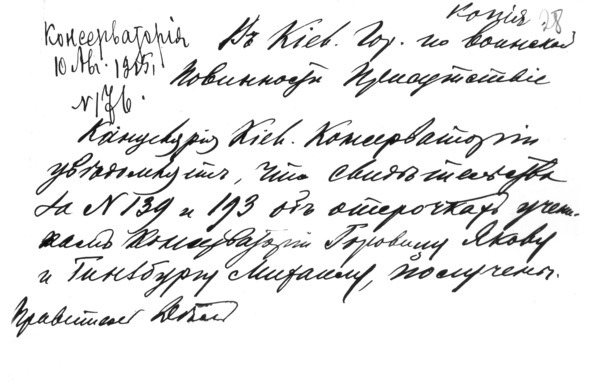 копія 28
Консерваторія
10 Авг. 1915,
N 176.
Въ Кіев. Гор. по воинской
повинности Присутствіе
Канцелярія Кіев. Консерваторіи
увѣдомляетъ, что свидѣтельства
за N 139 и 193 объ отсрочкахъ учени-
камъ Консерваторіи Горовицу Якову
и Гинзбургу Михаилу, получены.
Правитель Дѣлъ